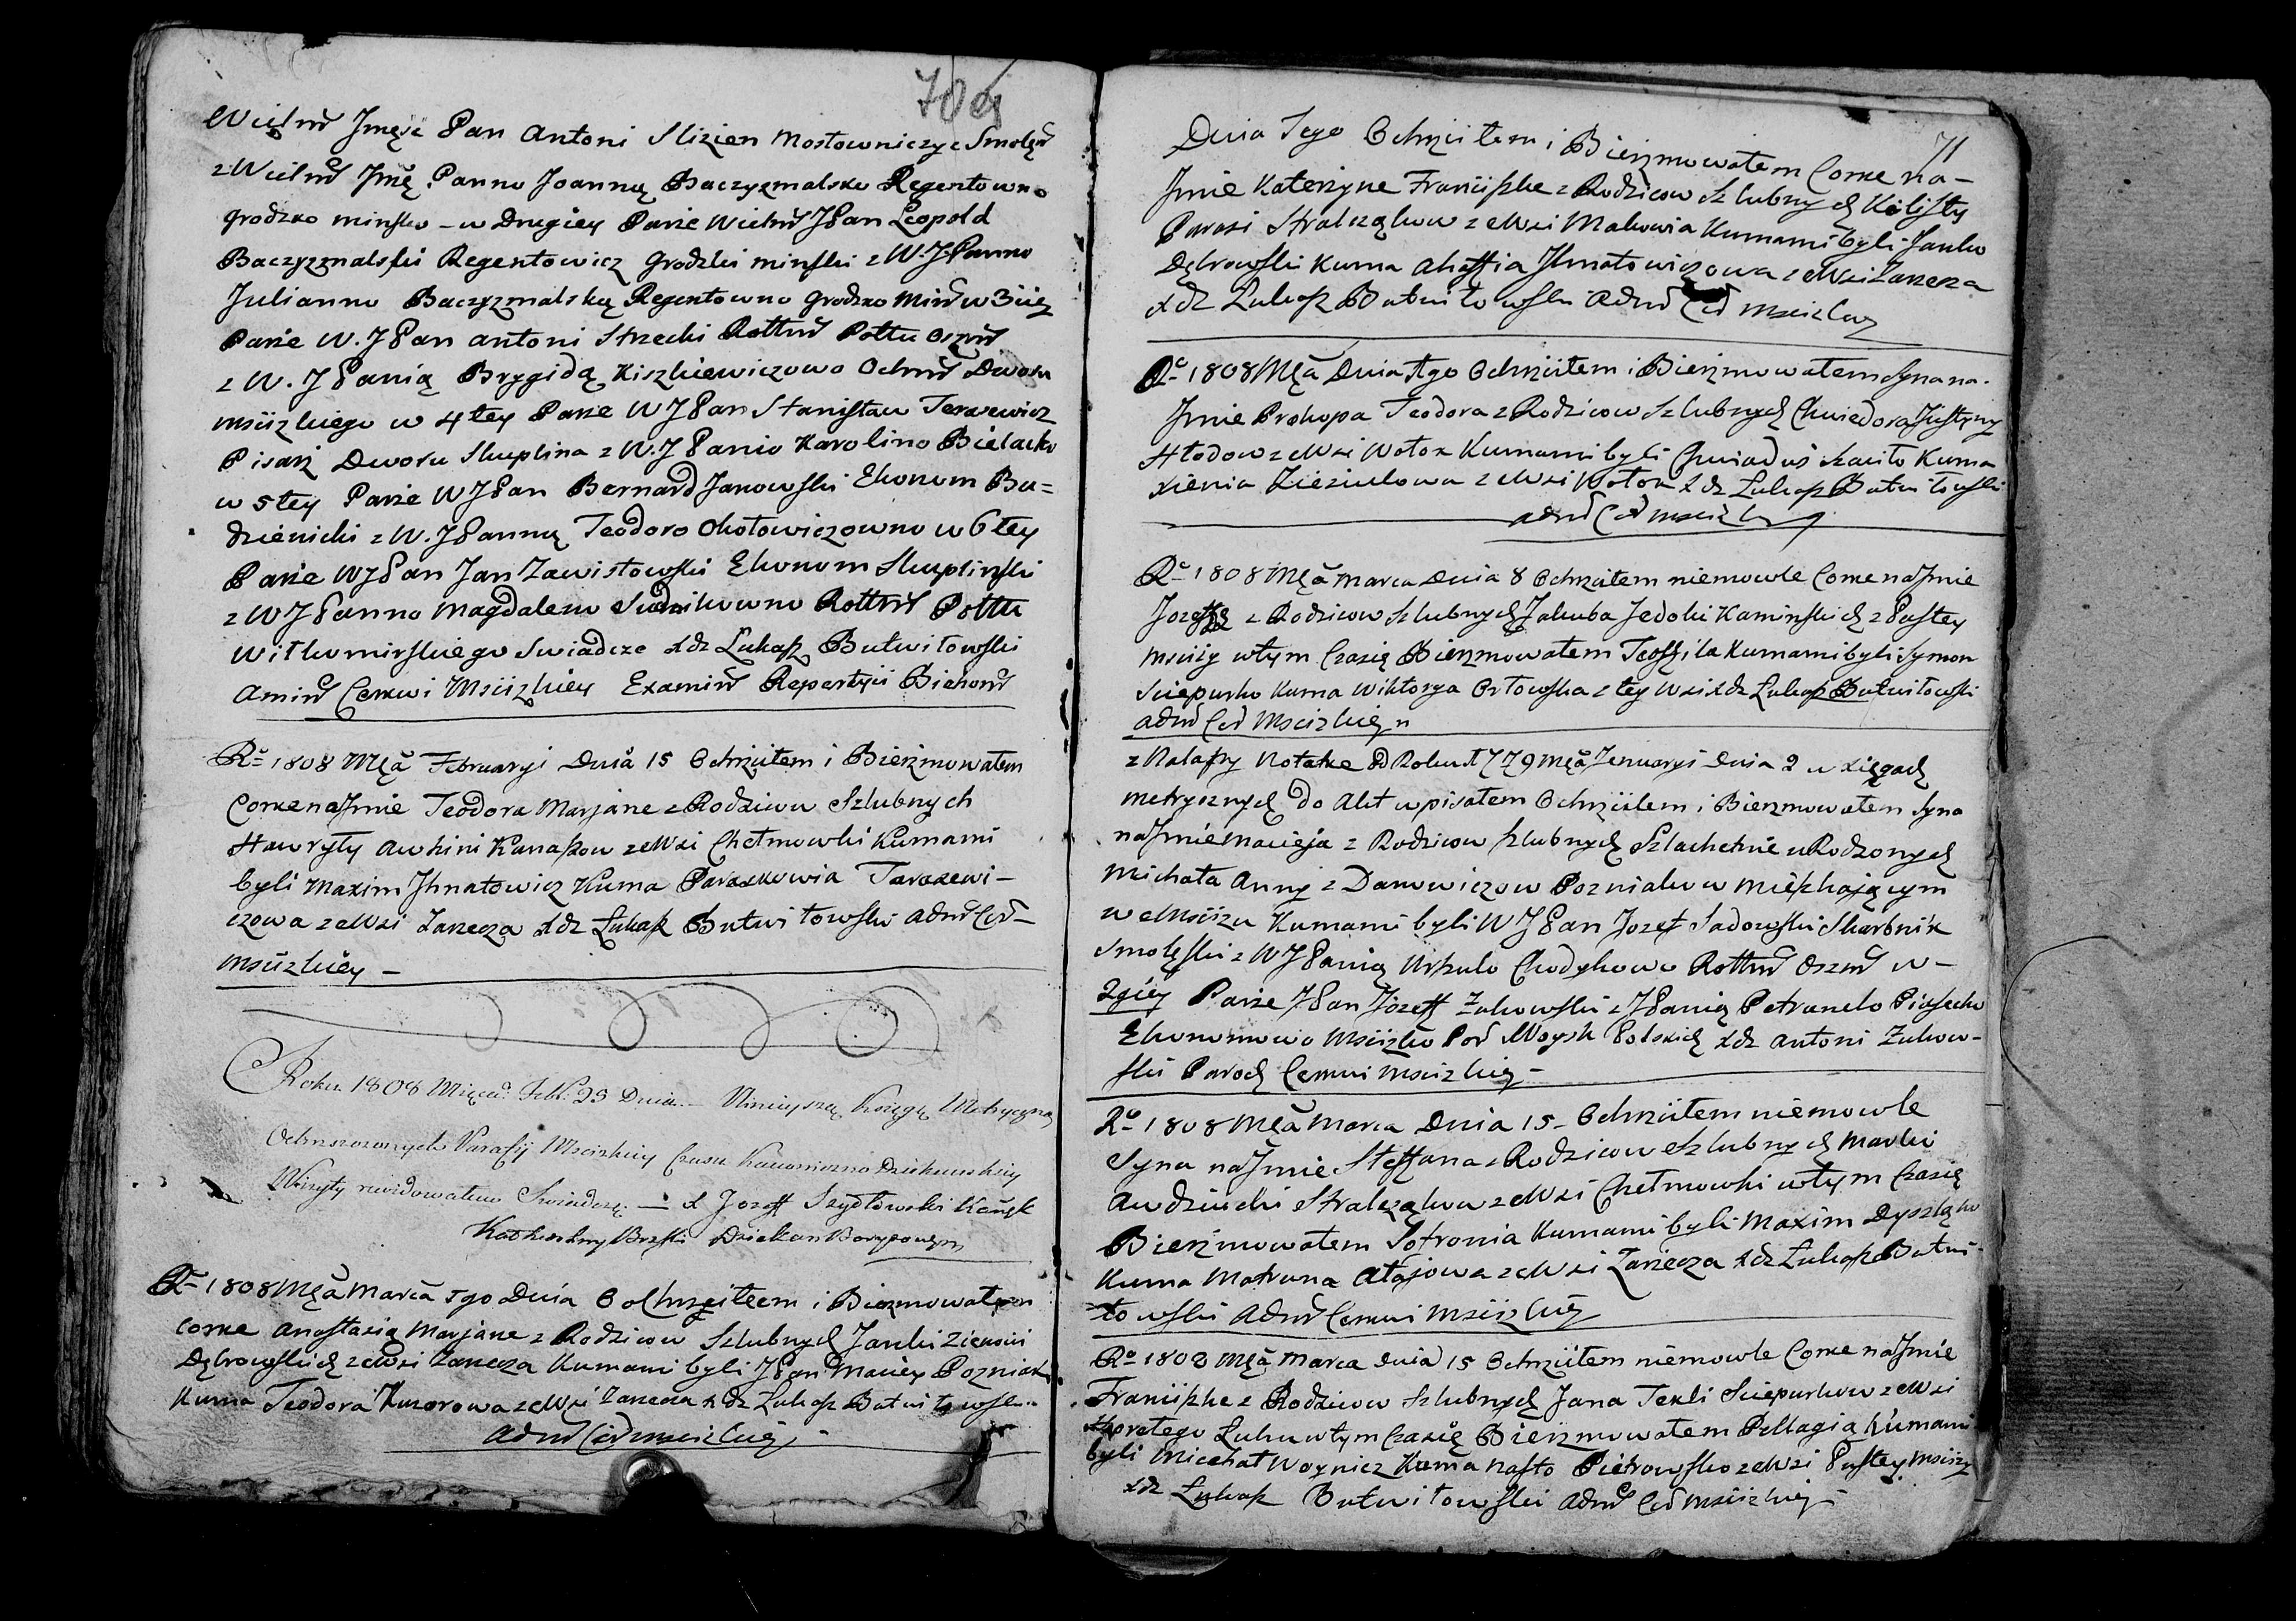 70a
Wielm Jmęć Pan Antoni Slizien Mostowniczyc Smolęń
z Wielm Jmć Panno Joanną Baczyzmalsko Regentowno
Grodzko minsko – w Drugiey Parze Wielm JPan Leopold
Baczyzmalski Regentowicz Grodzki minski z W.JPanno
Julianno Baczyzmalską Regentowno Grodzko Min w 3ciey
Parze W. JPan Antoni Strzecki Rottm Pottu Oszm
z W. JPanią Brygidą Kiszkiewiczowo Ochm Dworu
Msciizkiego w 4tey Parze WJPan Stanisław
Pisarz Dworu Skuplina z W.JPanio Karolino Bielacko
w 5tey Parze WJPan Bernard Janowski Ekonom Bu=
dzienicki z W.JPanną Teodoro Okołowiczowno w 6tey
Parze WJPan Jan Zawistowski Ekonom Skuplinski
z WJPanno Magdaleno Sudnikowno Rottm Pottu
Wiłkomirskiego Swiadcze xdz Łukasz Butwiłowski
Amin Cerkwi Msciizkiey Examin
Rº 1808 Mca Februaryi Dnia 15 Ochrzciłem i Bierzmowałem
Corke na Jmie Teodora Marjane z Rodzicow Szlubnych
Hawryły Awhini Kanaszow ze Wsi Chełmowki Kumami
byli Maxim Jhnatowicz Kuma Paraskowia Tarasewi–
czowa ze Wsi Zarzecza xdz Łukasz Butwiłowski Adm Cer–
Msciizkiey –
Roku 1808 Mięca Feb: 29 Dnia – Ninieyszą Księgę Metryczną
Ochrzczonych Parafij Mscizkiey Czasu Kanoniczno Dziekanskiey
Wizyty rewidowałem Swiadczę. — X Jozeff Szydłowski Kanęk
Kathedralny Brzski Dziekan Borysowsm
Rº 1808 Mca Marca 5go Dnia Ochrzciłem i Bierzmowałem
Corke Anastasią Marjane z Rodzicow Szlubnych Janki Zienowi
Dąbrowskich ze Wsi Zarzecza Kumami byli JPan Maciey Pozniak
Kuma Teodora ze Wsi Zarzecza xdz Łukasz Butwiłowski
Adm Cer Mscizkiey –
71
Dnia Tego Ochrzciłem i Bierzmowałem Corke na–
Jmie Katerzyne Franciszke z Rodzicow Szlubnych Kalisty
Parasi Stralcząkow ze Wsi Makowia Kumami byli Janko
Dąbrowski Kuma Ahaffia Jhnatowiczowa ze Wsi Zarzecza
xdz Łukasz Butwiłowski Adm Cer Mscizkiey
Rº 1808 Mca Dnia Ochrzciłem i Bierzmowałem Syna na
Jmie Prokopa Teodora z Rodzicow Szlubnych Chwiedora Justyny
Hłodow ze Wsi Wołok Kumami byli Kuma
Xienia Zieziulowa ze Wsi Wołok xdz Łukasz Butwiłowski
Adm Cer Mscizkiey
Rº 1808 Mca Marca Dnia 8 Ochrzciłem niemowle Corke na Jmie
Jozeffę z Rodzicow Szlubnych Jakuba Jedoki Kaminskich z Pustey
Msciży w tym Czasie Bierzmowałem Teoffila Kumami byli Symon
Sciepurko Kuma Wiktorya Orłowska z tey Wsi xdz Łukasz Butwiłowski
Adm Cer Mscizkiey
z Kalaszy Notatke od Roku 1779 Mca Jenuaryi Dnia 2 w xięgach
metrycznych do Akt wpisałem Ochrzciłem i Bierzmowałem Syna
na Jmie Macieja z Rodzicow szlubnych Szlachetnie uRodzonych
Michała Anny z Danowiczow Pozniakow mieszkającym
we Mscizu Kumami byli WJPan Jozef Sadowski Skarbnik
Smoleski z WJPanią Urszulo Chodzkowo Rottm Oszm w–
2giey Parze JPan Józeff Żukowski z JPanią Petrunelo Piasecko
Ekonomowo Mscizko Por Woysk Polskich xdz Antoni Żukow–
ski Paroch Cerkwi Mscizkiey –
Rº 1808 Mca Marca Dnia 15 – Ochrzciłem niemowle
Syna na Jmie Steffana z Rodzicow Szlubnych Marki
Awdziucki Stralcząkow ze Wsi Chełmowki w tym Czasie
Bierzmowałem Sofronia Kumami byli Maxim
Kuma Matruna ze Wsi Zarzecza xdz Łukasz Butwi–
łowski Adm Cerkwi Mscizkiey
Rº 1808 Mca Marca Dnia 15 Ochrzciłem niemowle Corke na Jmie
Franciszke z Rodzicow Szlubnych Jana Tekli Sciepurkow ze Wsi
Łuhu w tym Czasie Bierzmowałem Pellagią Kumami
byli Miechał Woynicz Kuma Nasto Pietrowsko ze Wsi Pustey Mscizy
xdz Łukasz Butwiłowski Adm Cer Mscizkiey –